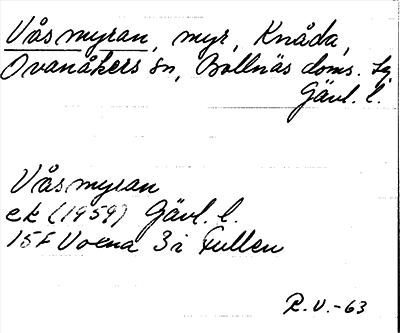 Våsmyran, myr, Knåda,
Ovanåkers sn, Bollnäs doms. tg
Gävl. l.
Våsmyran
ek (1959) Gävl. l.
15F Voxna 3i Fullen
R.V.-63